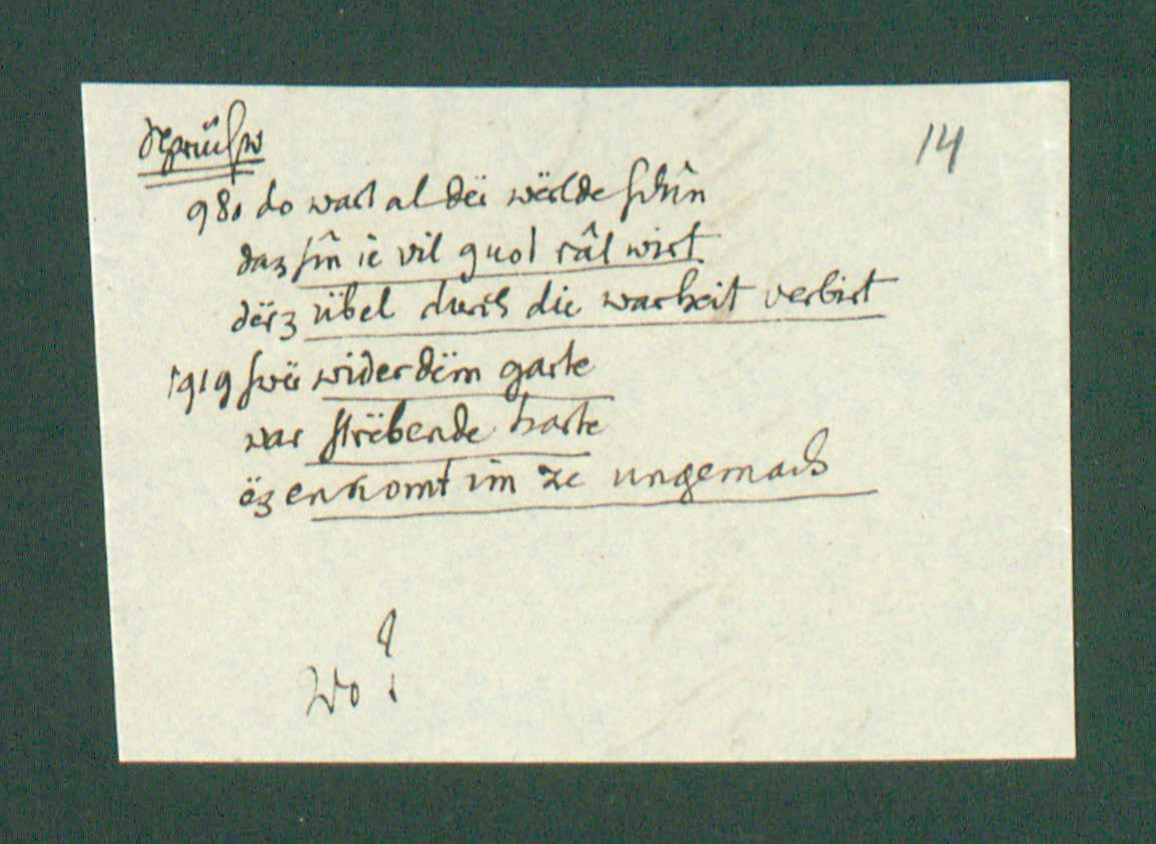 Sprüchw
14
980 do wart al dër wërlde schîn
daz sîn ie vil guot rât wirt
dërz übel durch die warheit verbirt
1919 swër wider dëm garte
war strëbende harte
ëz enkomt im ze ungemach
Wo?